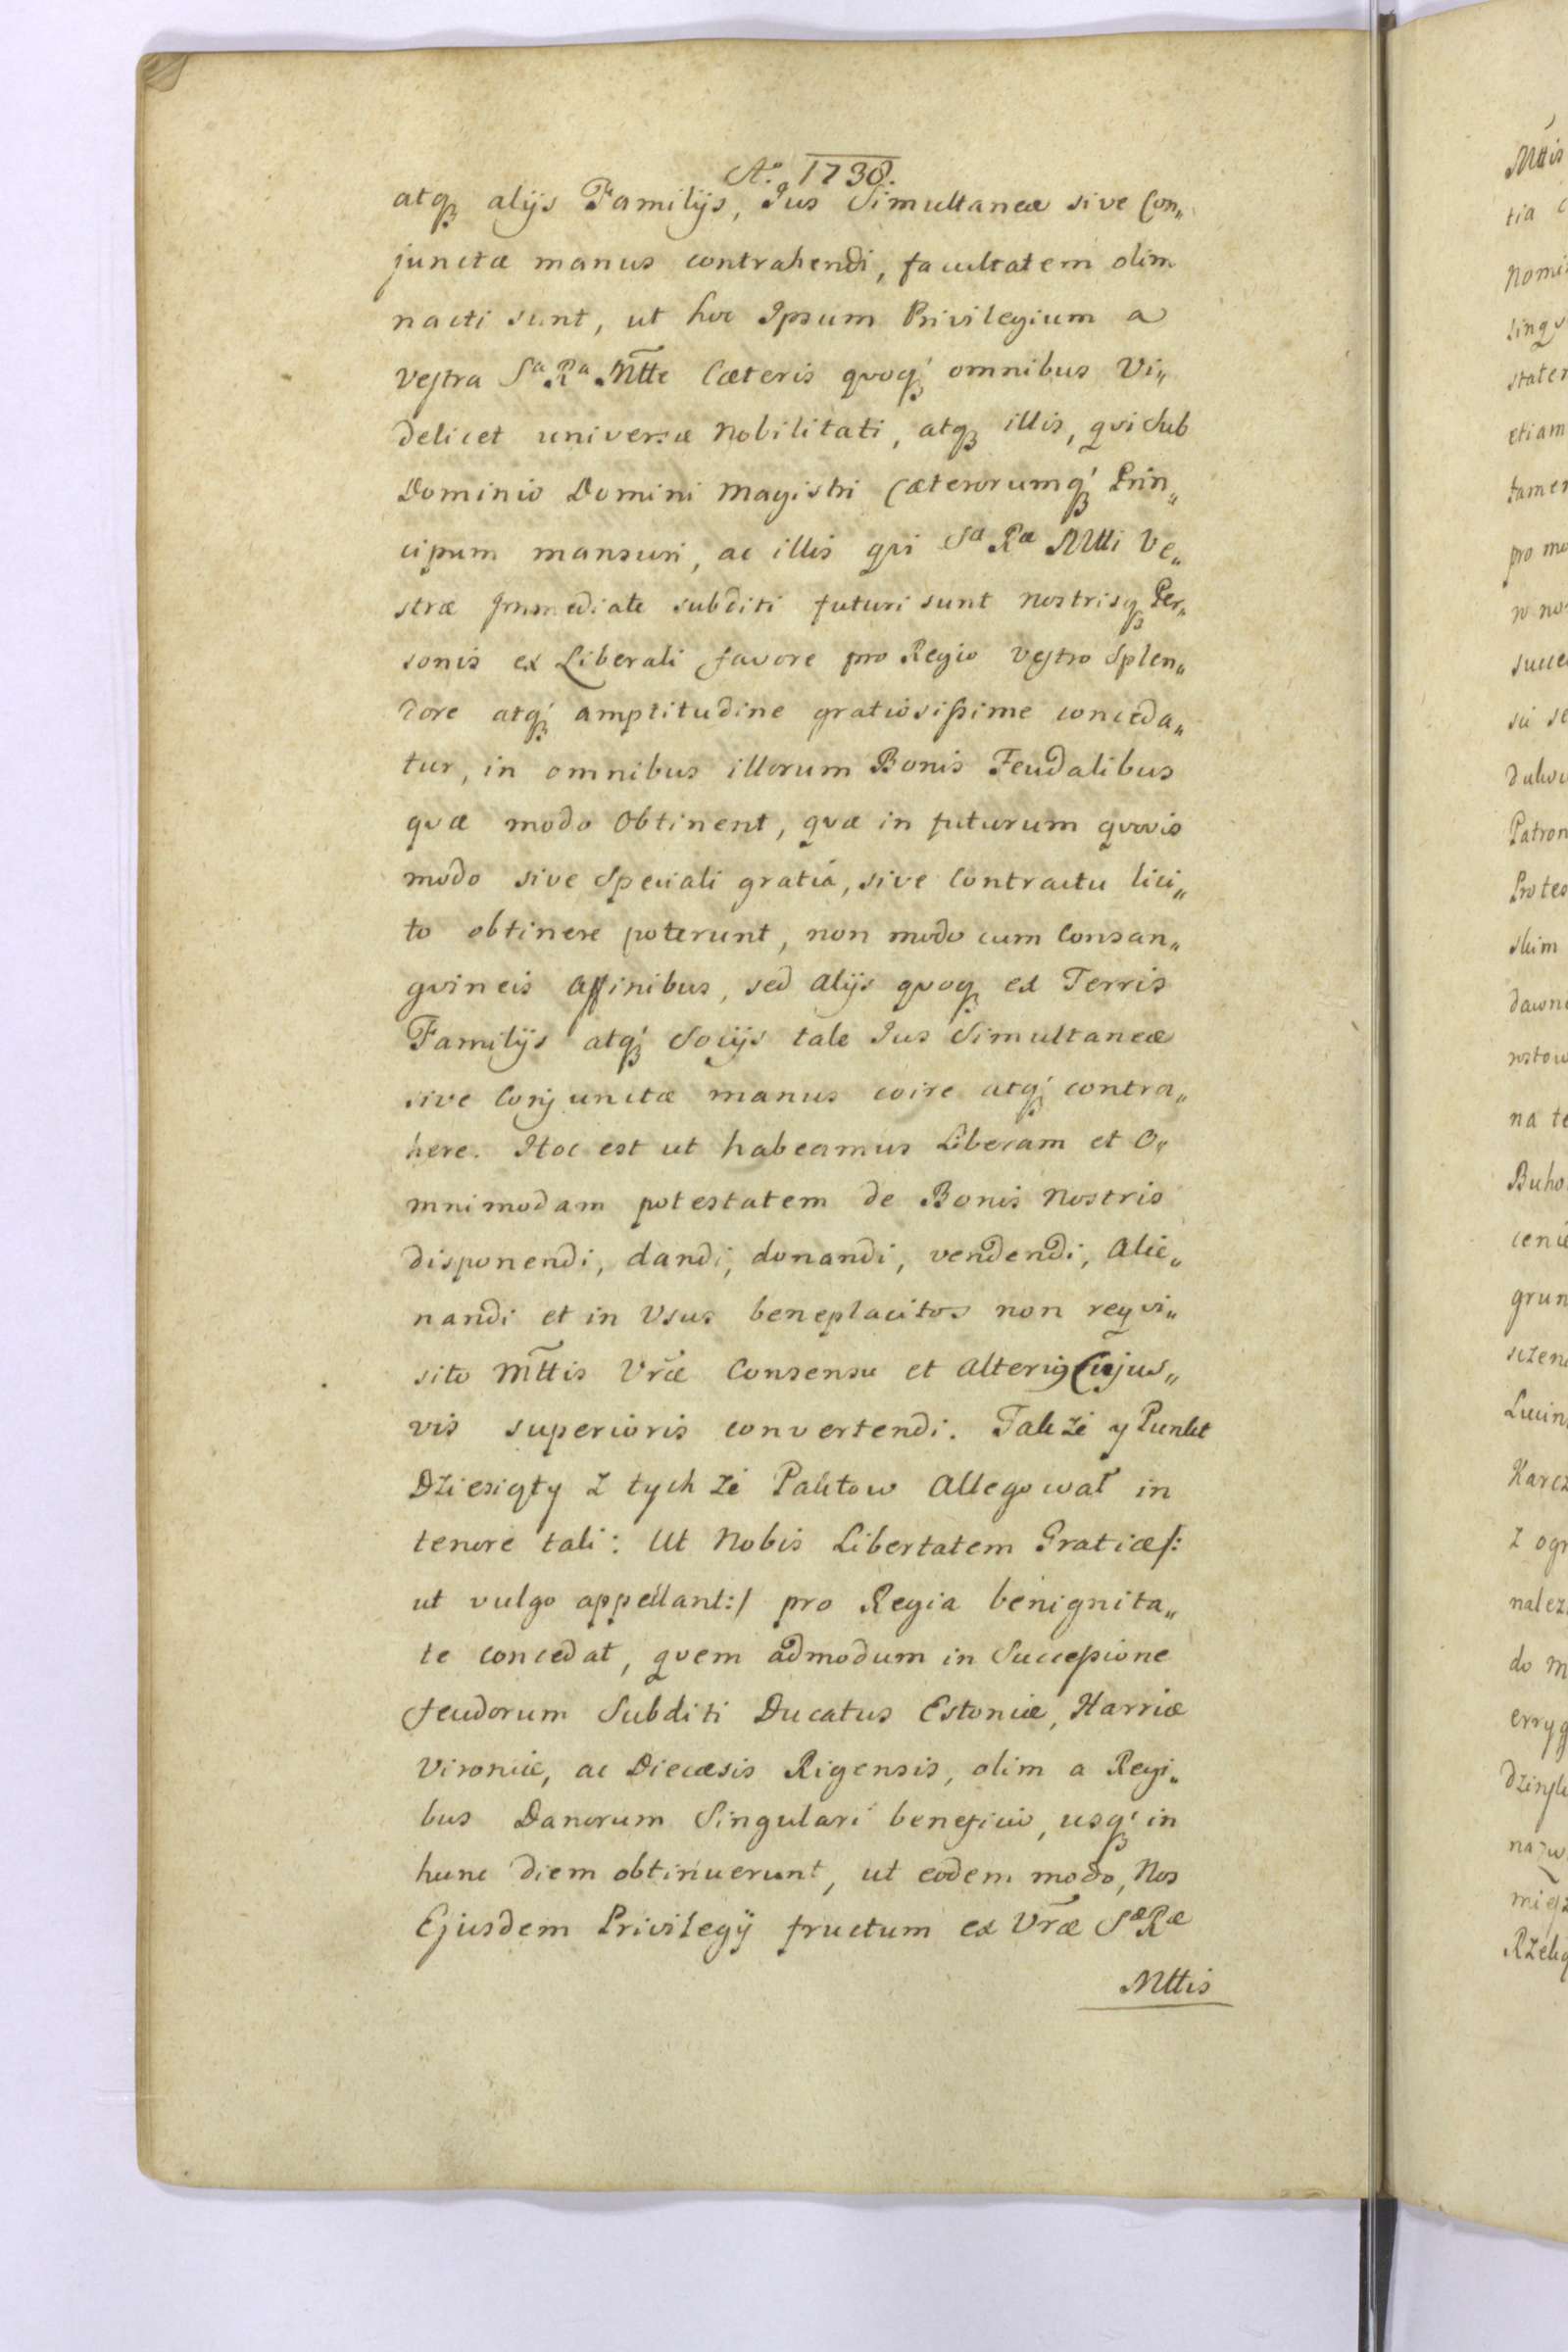 Aº. 1738.
atq₃ alijs Familijs, Jus Simultaneæ sive Con„
junctæ manus contrahendi, facultatem olim
nacti sunt, ut hoc Ipsum Privilegium a
Vestra Sᵃ Rᵃ Mtte Cæteris quoq₃ omnibus Vi„
delicet universæ Nobilitati, atq₃ illis, qvi Sub
Dominio Domini Magistri Cæterorumq₃ Prin„
cipum mansuri, ac illis qvi Sæ Ræ Mtti Ve„
stræ Immediate subditi futuri sunt nostrisq₃ Per„
sonis ex Liberali favore pro Regio Vestro Splen„
dore atq₃ amplitudine gratiosissime conceda„
tur, in omnibus illorum Bonis Feudalibus
qvæ modo Obtinent, qvæ in futurum qvovis
modo sive Speciali gratiá, sive Contractu lici„
to obtinere poterunt, non modo cum Consan„
gvineis Affinibus, sed Alijs qvoq₃ ex Terris
Familijs atq₃ Socijs tale Jus Simultaneæ
sive Conjunctæ manus coire atq₃ contra„
here. Hoc est ut habeamus Liberam et O„
mnimodam potestatem de Bonis Nostris
disponendi, dandi, donandi, vendendi, Alie„
nandi et in Usus beneplacitos non reqvi„
sito Mttis Vræ Consensu et Alteriꝰ Cujus„
vis superioris convertendi. Także y Punkt
Dziesiąty z tychże Paktow Allegował in
tenore tali: Ut Nobis Libertatem Gratiæ/:
ut vulgo appellant:/ pro Regia benignita„
te concedat, qvem admodum in Successione
feudorum Subditi Ducatus Estoniæ, Harriæ
Vironiæ, ac Diecæsis Rigensis, olim a Regi„
bus Danorum Singulari beneficio, usq₃ in
hunc diem obtinuerunt, ut eodem modo, Nos
Ejusdem Privilegij fructum ex Vræ Sæ Ræ
Mttis